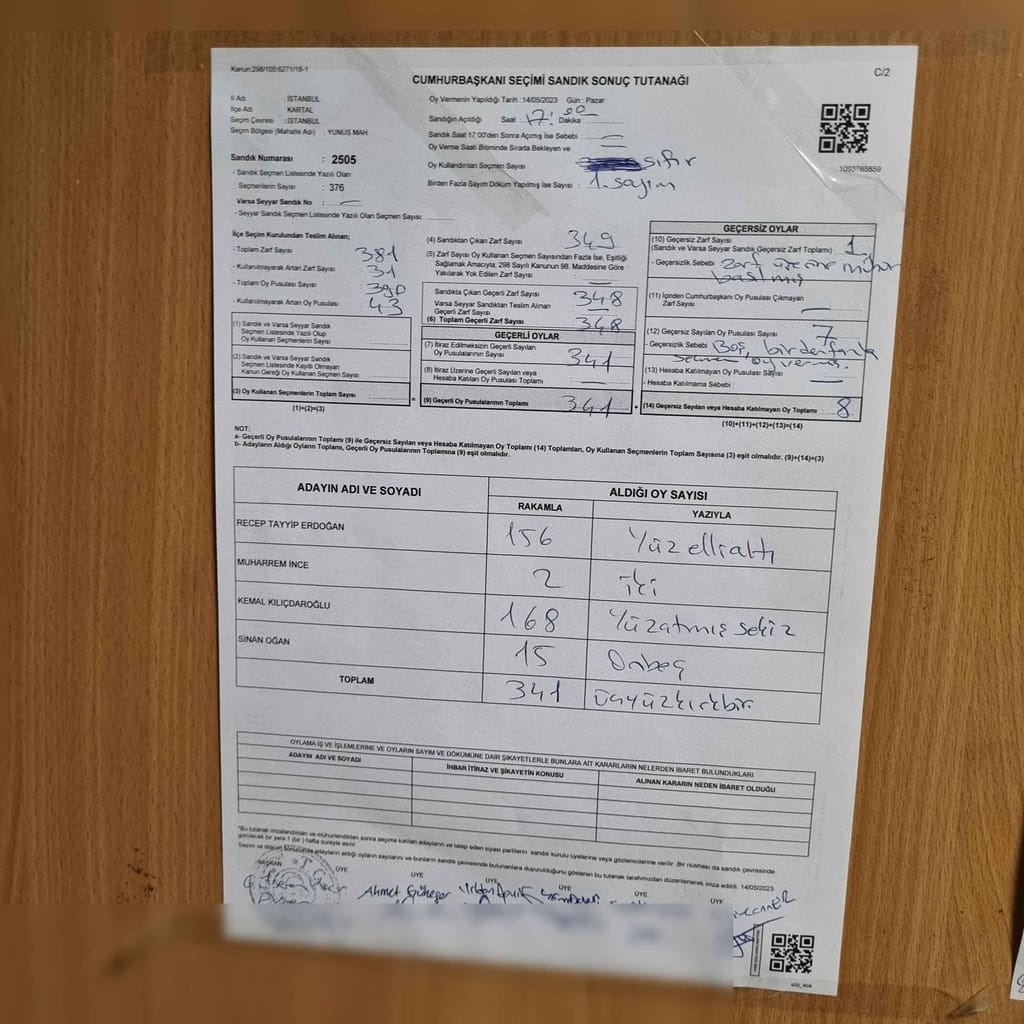 Kanun:298/105;6271/18-1
C/2
CUMHURBAŞKANI SEÇİMİ SANDIK SONUÇ TUTANAĞI
İl Adı : İSTANBUL
İlçe Adı : KARTAL
Seçim Çevresi : İSTANBUL
Seçim Bölgesi (Mahalle Adı) : YUNUS MAH
Sandık Numarası : 2505
- Sandık Seçmen Listesinde Yazılı Olan
Seçmenlerin Sayısı : 376
Varsa Seyyar Sandık No :
- Seyyar Sandık Seçmen Listesinde Yazılı Olan Seçmen Sayısı:
Oy Vermenin Yapıldığı Tarih : 14/05/2023 Gün : Pazar
Sandığın Açıldığı Saat : 17:00 Dakika
Sandık Saat 17:00'den Sonra Açımış İse Sebebi :
Oy Verme Saati Bitiminde Sırada Bekleyen ve
Oy Kullandırılan Seçmen Sayısı sıfır
Birden Fazla Sayım Döküm Yapılmış İse Sayısı : 1.sayım
1093785859
İlçe Seçim Kurulundan Teslim Alınan;
- Toplam Zarf Sayısı 381
- Kullanılmayarak Artan Zarf Sayısı 31
- Toplam Oy Pusulası Sayısı 390
- Kullanılmayarak Artan Oy Pusulası 43
(1) Sandık ve Varsa Seyyar Sandık
Seçmen Listesinde Yazılı Olup
Oy Kullanan Seçmenlerin Sayısı :
(2) Sandık ve Varsa Seyyar Sandık
Seçmen Listesinde Kaydı Olmayan
Kanun Gereği Oy Kullanan Seçmen Sayısı
(3) Oy Kullanan Seçmenlerin Toplam Sayısı :
(1)+(2)=(3)
(4) Sandıktan Çıkan Zarf Sayısı 349
(5) Zarf Sayısı Oy Kullanan Seçmen Sayısından Fazla İse, Eşitliği
Sağlamak Amacıyla, 298 Sayılı Kanunun 98. Maddesine Göre
Yakılarak Yok Edilen Zarf Sayısı :
Sandıkta Çıkan Geçerli Zarf Sayısı 348
Varsa Seyyar Sandıktan Teslim Alınan
Geçerli Zarf Sayısı
(6) Toplam Geçerli Zarf Sayısı 348
GEÇERLİ OYLAR
(7) İtiraz Edilmeksizin Geçerli Sayılan
Oy Pusulalarının Sayısı 341
(8) İtiraz Üzerine Geçerli Sayılan veya
Hesaba Katılan Oy Pusulası Toplamı
(9) Geçerli Oy Pusulalarının Toplamı 341
GEÇERSİZ OYLAR
(10) Geçersiz Zarf Sayısı
(Sandık ve Varsa Seyyar Sandık Geçersiz Zarf Toplamı) : 1
- Geçersizlik Sebebi : Zarf üzerine mühür
basılmış
(11) İçinden Cumhurbaşkanı Oy Pusulası Çıkmayan
Zarf Sayısı
(12) Geçersiz Sayılan Oy Pusulası Sayısı 7
- Geçersizlik Sebebi : Boş, birden fazla
oy vermiş.
(13) Hesaba Katılmayan Oy Pusulası Sayısı
- Hesaba Katılmama Sebebi :
(14) Geçersiz Sayılan veya Hesaba Katılmayan Oy Toplamı : 8
(10)+(11)+(12)+(13)=(14)
NOT:
a- Geçerli Oy Pusulalarının Toplamı (9) ile Geçersiz Sayılan veya Hesaba Katılmayan Oy Toplamı (14) Toplamları, Oy Kullanan Seçmenlerin Toplam Sayısına (3) eşit olmalıdır. (9)+(14)=(3)
b- Adayların Aldığı Oyların Toplamı, Geçerli Oy Pusulalarının Toplamına (9) eşit olmalıdır.
ADAYIN ADI VE SOYADI ALDIĞI OY SAYISI
RAKAMLA YAZIYLA
RECEP TAYYİP ERDOĞAN 156 Yüz ellialtı
MUHARREM İNCE 2 iki
KEMAL KILIÇDAROĞLU 168 Yüzatmış sekiz
SİNAN OĞAN 15 Onbeş
TOPLAM 341 üçyüzkırkbir
OYLAMA İŞ VE İŞLEMLERİNE VE OYLARIN SAYIM VE DÖKÜMÜNE DAİR ŞİKAYETLERLE BUNLARA AİT KARARLARIN NELERDEN İBARET BULUNDUKLARI
ADAYIN ADI VE SOYADI İHBAR İTİRAZ VE ŞİKAYETİN KONUSU ALINAN KARARIN NEDEN İBARET OLDUĞU
"Bu tutanak imzalandıktan ve mühürlendikten sonra seçime katılan adayların ve talep eden siyasi partilerin sandık kurulu üyelerine veya gözlemcilerine verilir. Bir nüshası da sandık çevresinde
görülecek bir yere 1 (bir) hafta süreyle asılır.
Sayım ve döküm sonucunda adayların aldığı oyların sayılarını ve bunların sandık çevresinde bulunanlara duyurulduğunu gösteren bu tutanak tarafımızdan düzenlenerek imza edildi. 14/05/2023
BAŞKAN ÜYE ÜYE ÜYE ÜYE ÜYE ÜYE
Ahmet